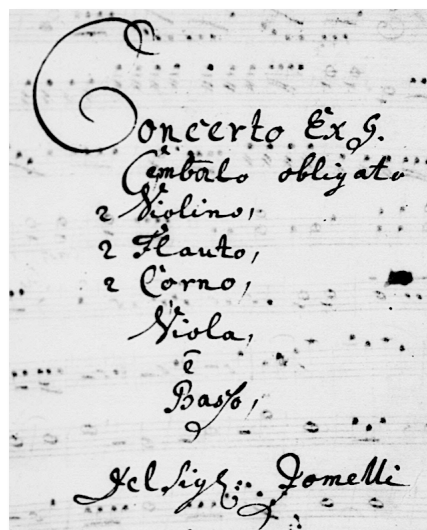 Concerto Ex G.
Cembalo obligato
2 Violino,
2 Flauto,
2 Corno,
Viola,
è
Basso,
Del Sigr: Jomelli